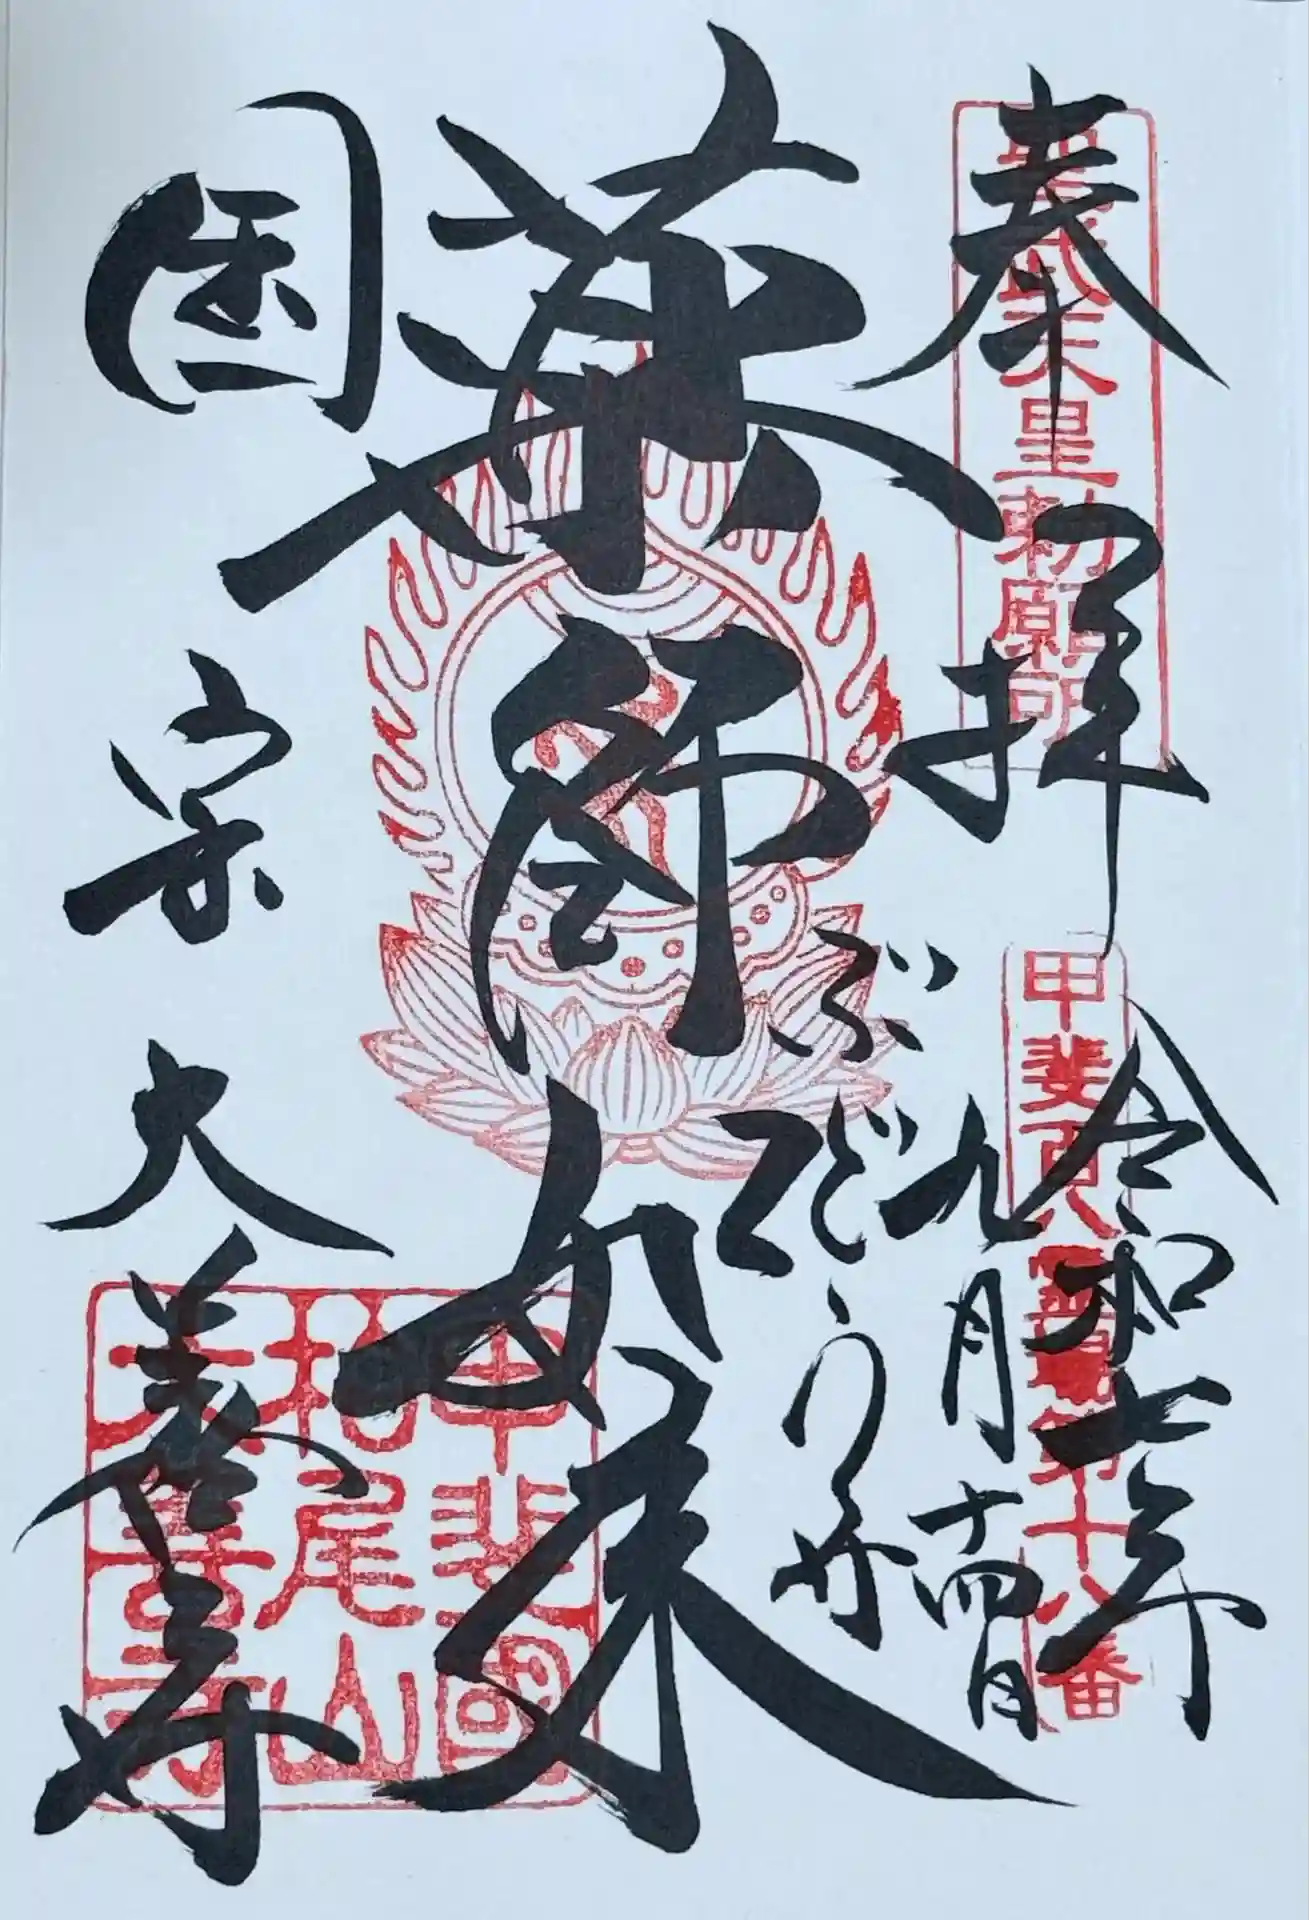 奉拝
聖武天皇勅願所
甲斐百八霊場第十八番
令和七年
九月十四日
ぶどう寺
薬師如来
国宝
大善寺
甲斐國
柏尾山
大善寺